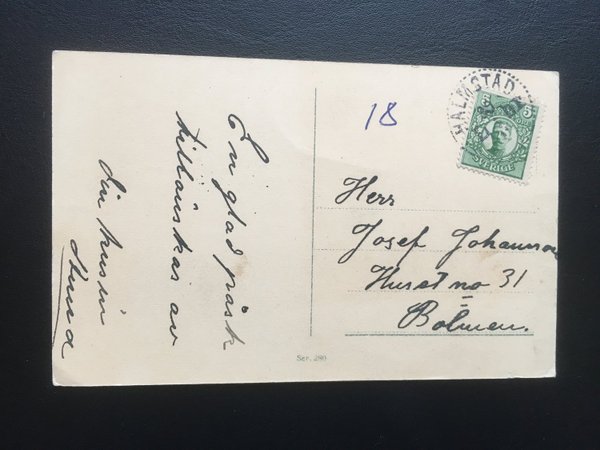 En glad påsk
tillönskas av
din kusin
18
HALMSTAD
5
SVERIGE
Herr
Josef Johansson
Huset no 31
Bolmen.
Ser. 280